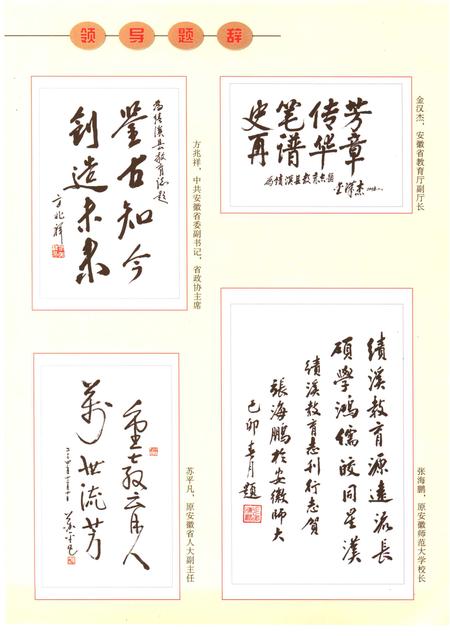 领导题辞
为绩溪县教育志题
鉴古知今
创造未来
方兆祥
方兆祥，中共安徽省委副书记，省政协主席
芳章
传华
笔谱
史再
为绩溪县教育志题
金汉杰
金汉杰，安徽省教育厅副厅长
重教育人
万世流芳
苏平凡
苏平凡，原安徽省人大副主任
绩溪教育源远流长
硕学鸿儒皎同星汉
绩溪教育志刊行志贺
張海鹏於安徽師大
己卯春月題
张海鹏，原安徽师范大学校长